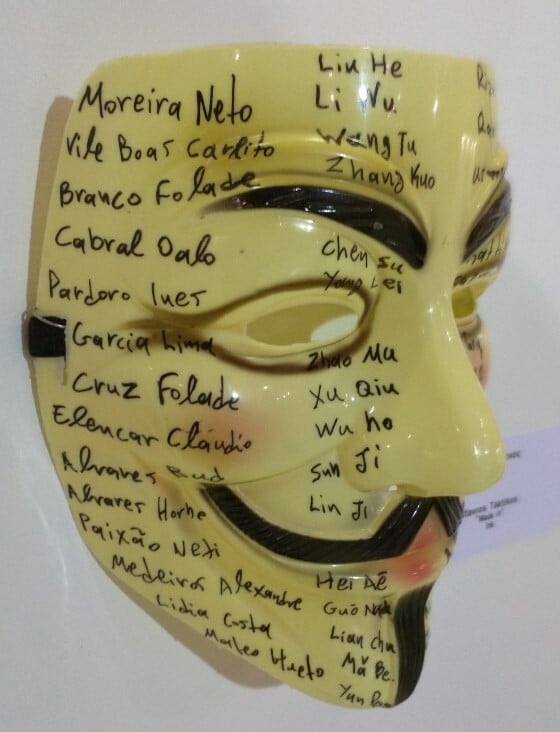 Moreira Neto
Vile Boas Carlito
Branco Folade
Cabral Dalo
Pardoro Ines
Garcia Lima
Cruz Folade
Elencar Cláudio
Alvares Bud
Alvares Horhe
Paixão Neti
Medeiros Alexandre
Lidia Costa
Mateo Hueto
Liu He
Li Wu
Wang Tu
Zhang Kuo
Chen Su
Yang Lei
Zhao Mu
Xu Qiu
Wu ho
Sun Ji
Lin Ji
Hei Aē
Guō
Lian chu
Mǎ Be.
Yun
"Made in"